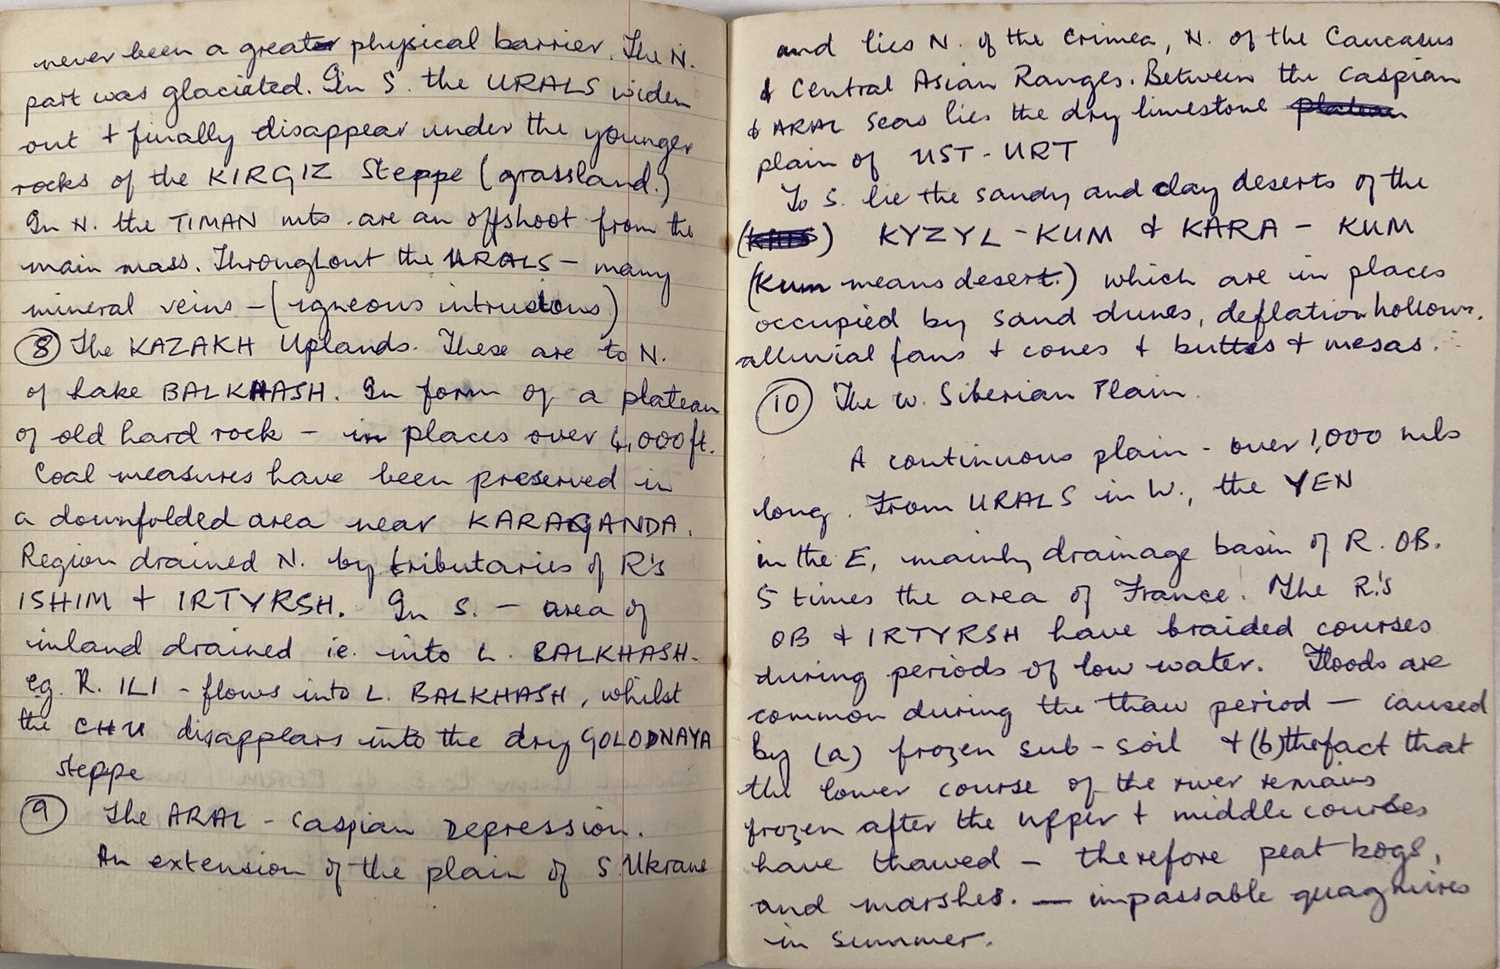 never been a great physical barrier. The N.
part was glaciated. In S. the URALS widen
out + finally disappear under the younger
rocks of the KIRGIZ Steppe (grassland.)
In N. the TIMAN mts. are an offshoot from the
main mass. Throughout the URALS - many
mineral veins - (igneous intrusions)
⑧ The KAZAKH Uplands. These are to N.
of Lake BALKHASH. In form of a plateau
of old hard rock - in places over 4,000ft.
Coal measures have been preserved in
a downfolded area near KARAGANDA.
Region drained N. by tributaries of R's
ISHIM + IRTYRSH. In S. - area of
inland drained ie. into L. BALKHASH.
eg. R. ILI - flows into L. BALKHASH, whilst
the CHU disappears into the dry GOLODNAYA
steppe
⑨ The ARAL - Caspian Depression.
An extension of the plain of S. Ukrane
and lies N. of the Crimea, N. of the Caucasus
& Central Asian Ranges. Between the Caspian
& ARAL seas lies the dry limestone plateau
plain of UST-URT
To S. lie the sandy and clay deserts of the
( ) KYZYL-KUM & KARA-KUM
(Kum means desert.) which are in places
occupied by sand dunes, deflation hollows,
alluvial fans + cones + buttes + mesas.
⑩ The W. Siberian Plain.
A continuous plain - over 1,000 mls
long. From URALS in W., the YEN
in the E, mainly drainage basin of R. OB.
5 times the area of France! The R.'s
OB & IRTYRSH have braided courses
during periods of low water. Floods are
common during the thaw period - caused
by (a) frozen sub-soil + (b) the fact that
the lower course of the river remains
frozen after the upper + middle courses
have thawed - therefore peat bogs,
and marshes. - impassable quagmires
in summer.